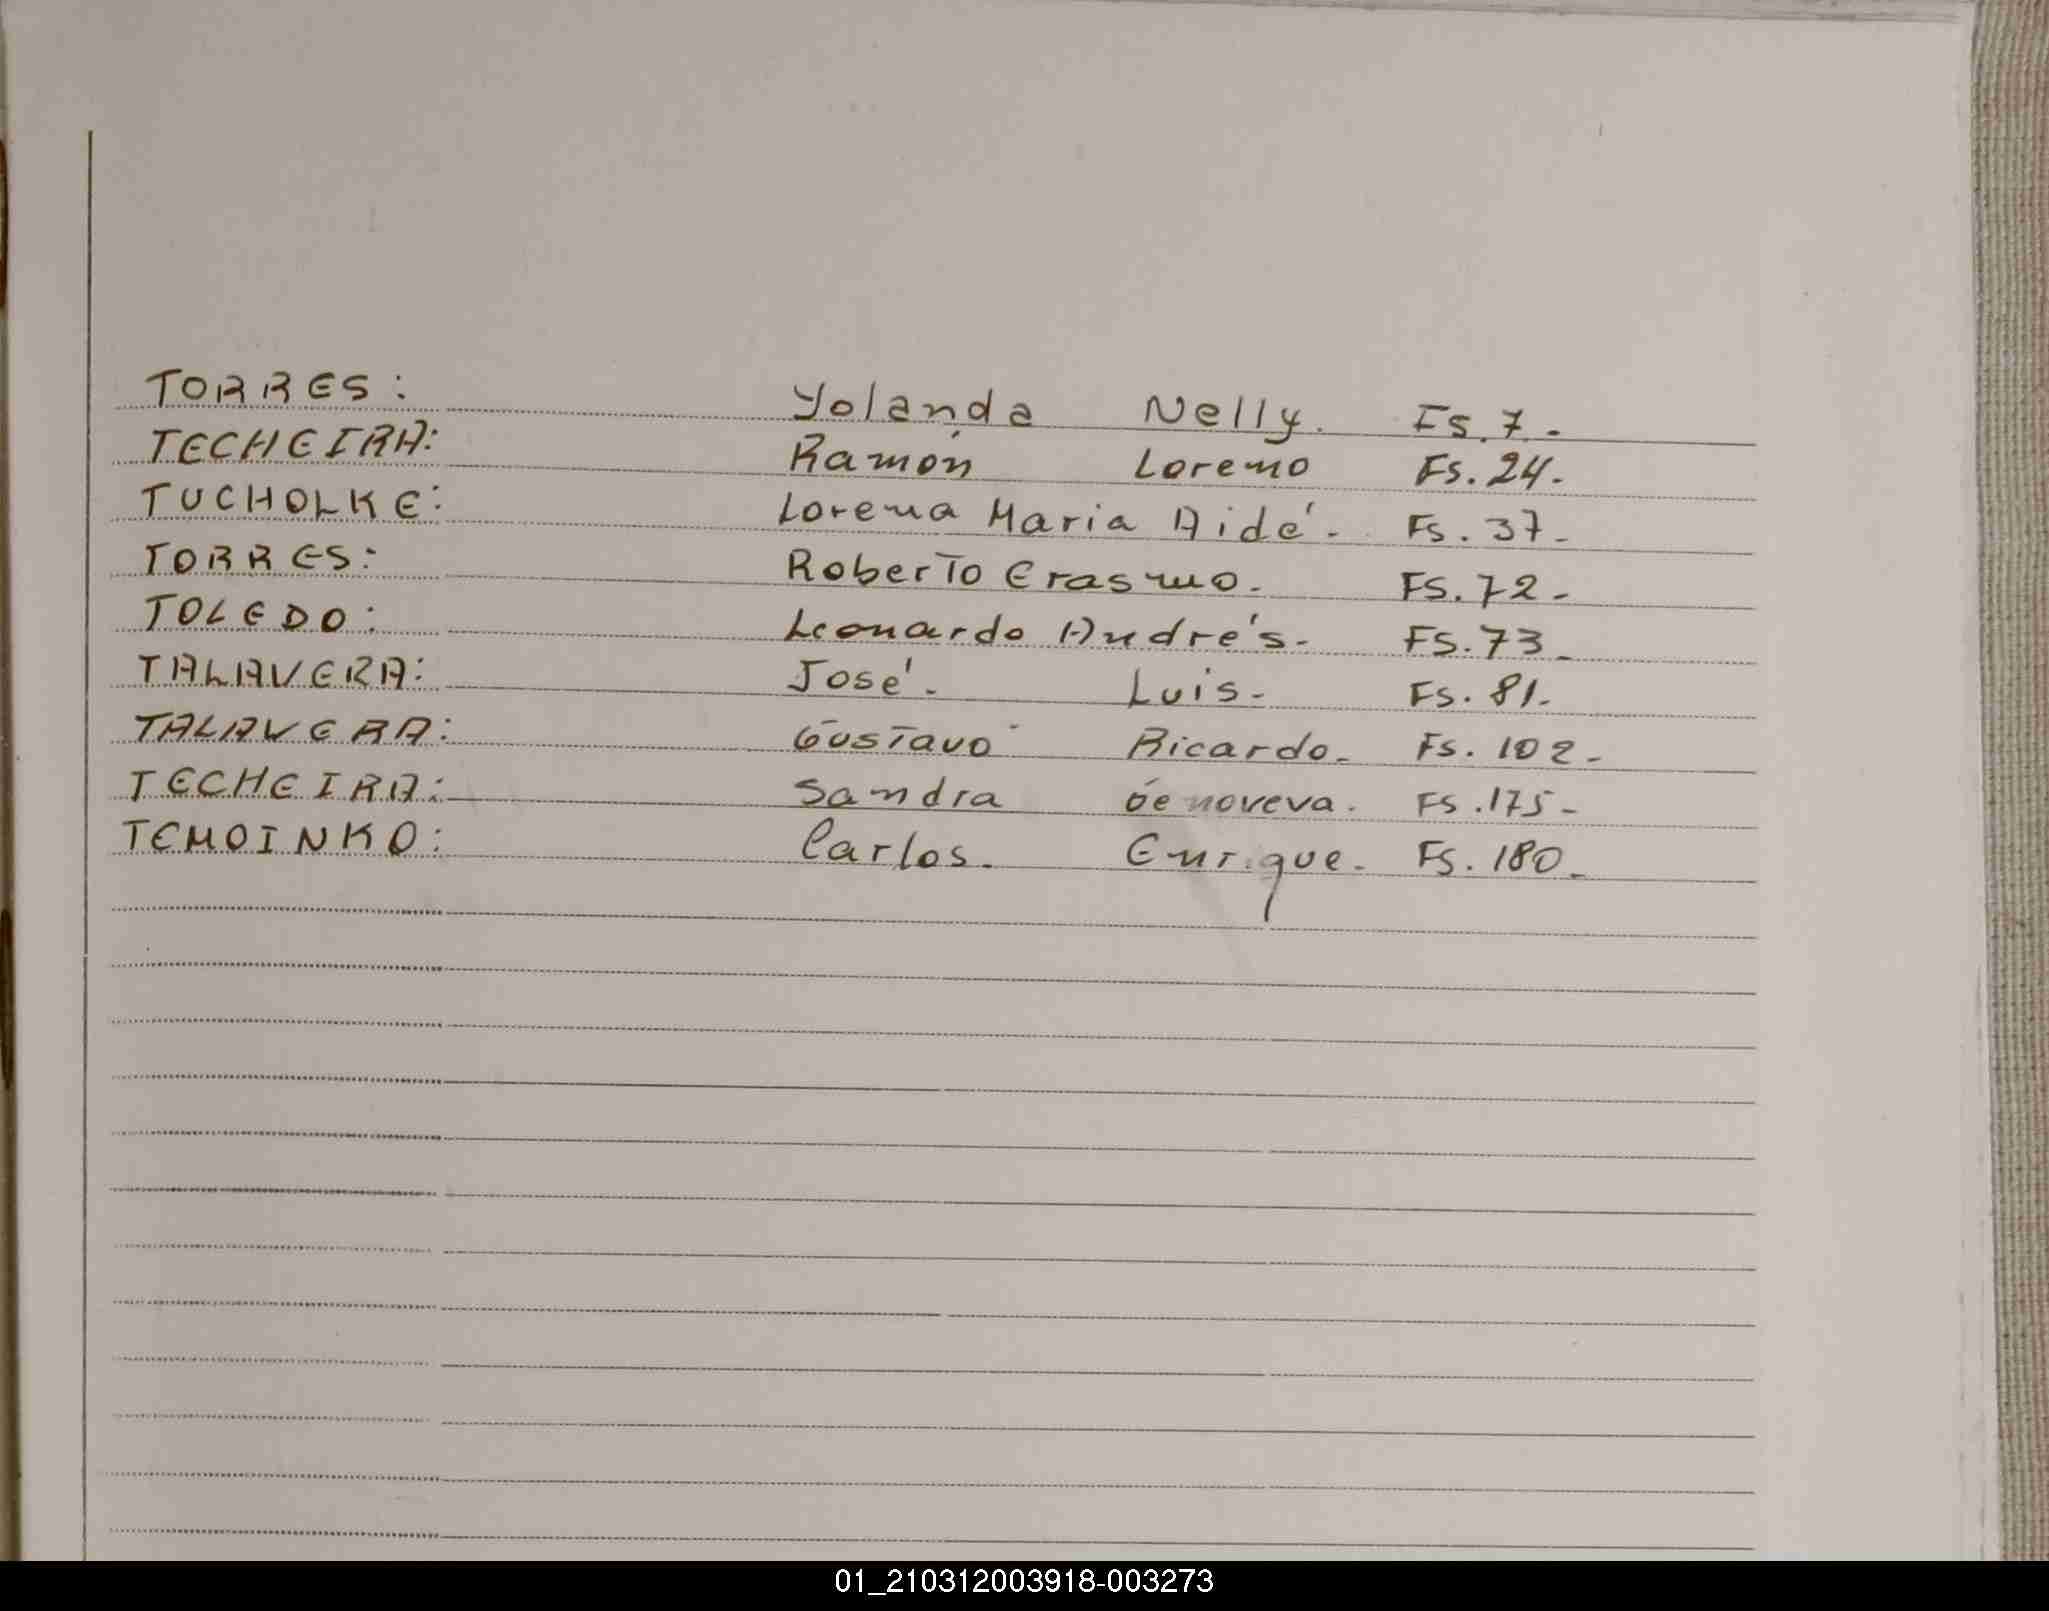 TORRES: Yolanda Nelly. Fs. 7.-
TECHEIRA: Ramón Loremo Fs. 24.-
TUCHOLKE: Lorena Maria Aidé.- Fs. 37.-
TORRES: Roberto Erasmo.- FS. 72.-
TOLEDO: Leonardo Andrés.- FS. 73.-
TALAVERA: José.- Luis.- Fs. 81.-
TALAVERA: Gustavo Ricardo.- Fs. 102.-
TECHEIRA: Sandra Genoveva. Fs. 175.-
TEMOINKO: Carlos.- Enrique.- Fs. 180.-
01_210312003918-003273